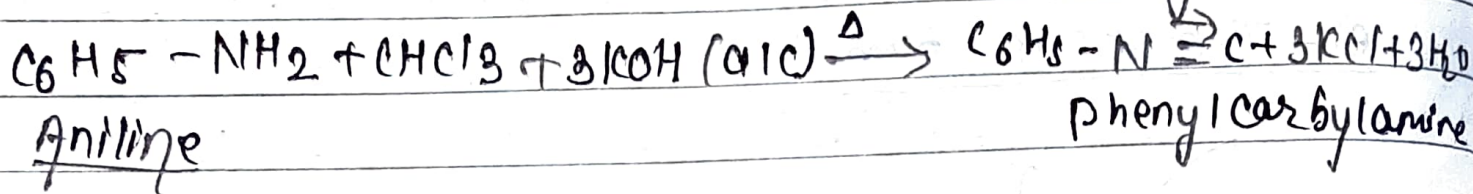 C6H5-NH2+CHCl3+3KOH(alc) Δ→ C6H5-N⩲→C+3KCl+3H2O
Aniline phenylcarbylamine